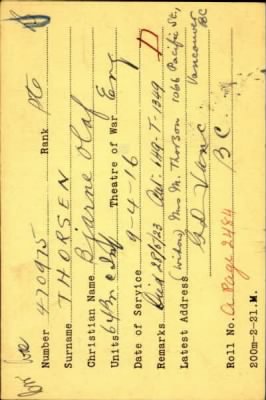 Number 470975 Rank Pte
Surname THORSEN
Christian Name Bjarne Olaf
Units 64 Bn C Inf Theatre of War Eng
Date of Service 9-4-16
Remarks Died 28/6/23 Aut. 149-T-1349 D
Latest Address (widow) Mrs M. Thorson 1066 Pacific St.,
Vancouver
BC
B.C.
Roll No. a Page 2484
200m-2-21.M.